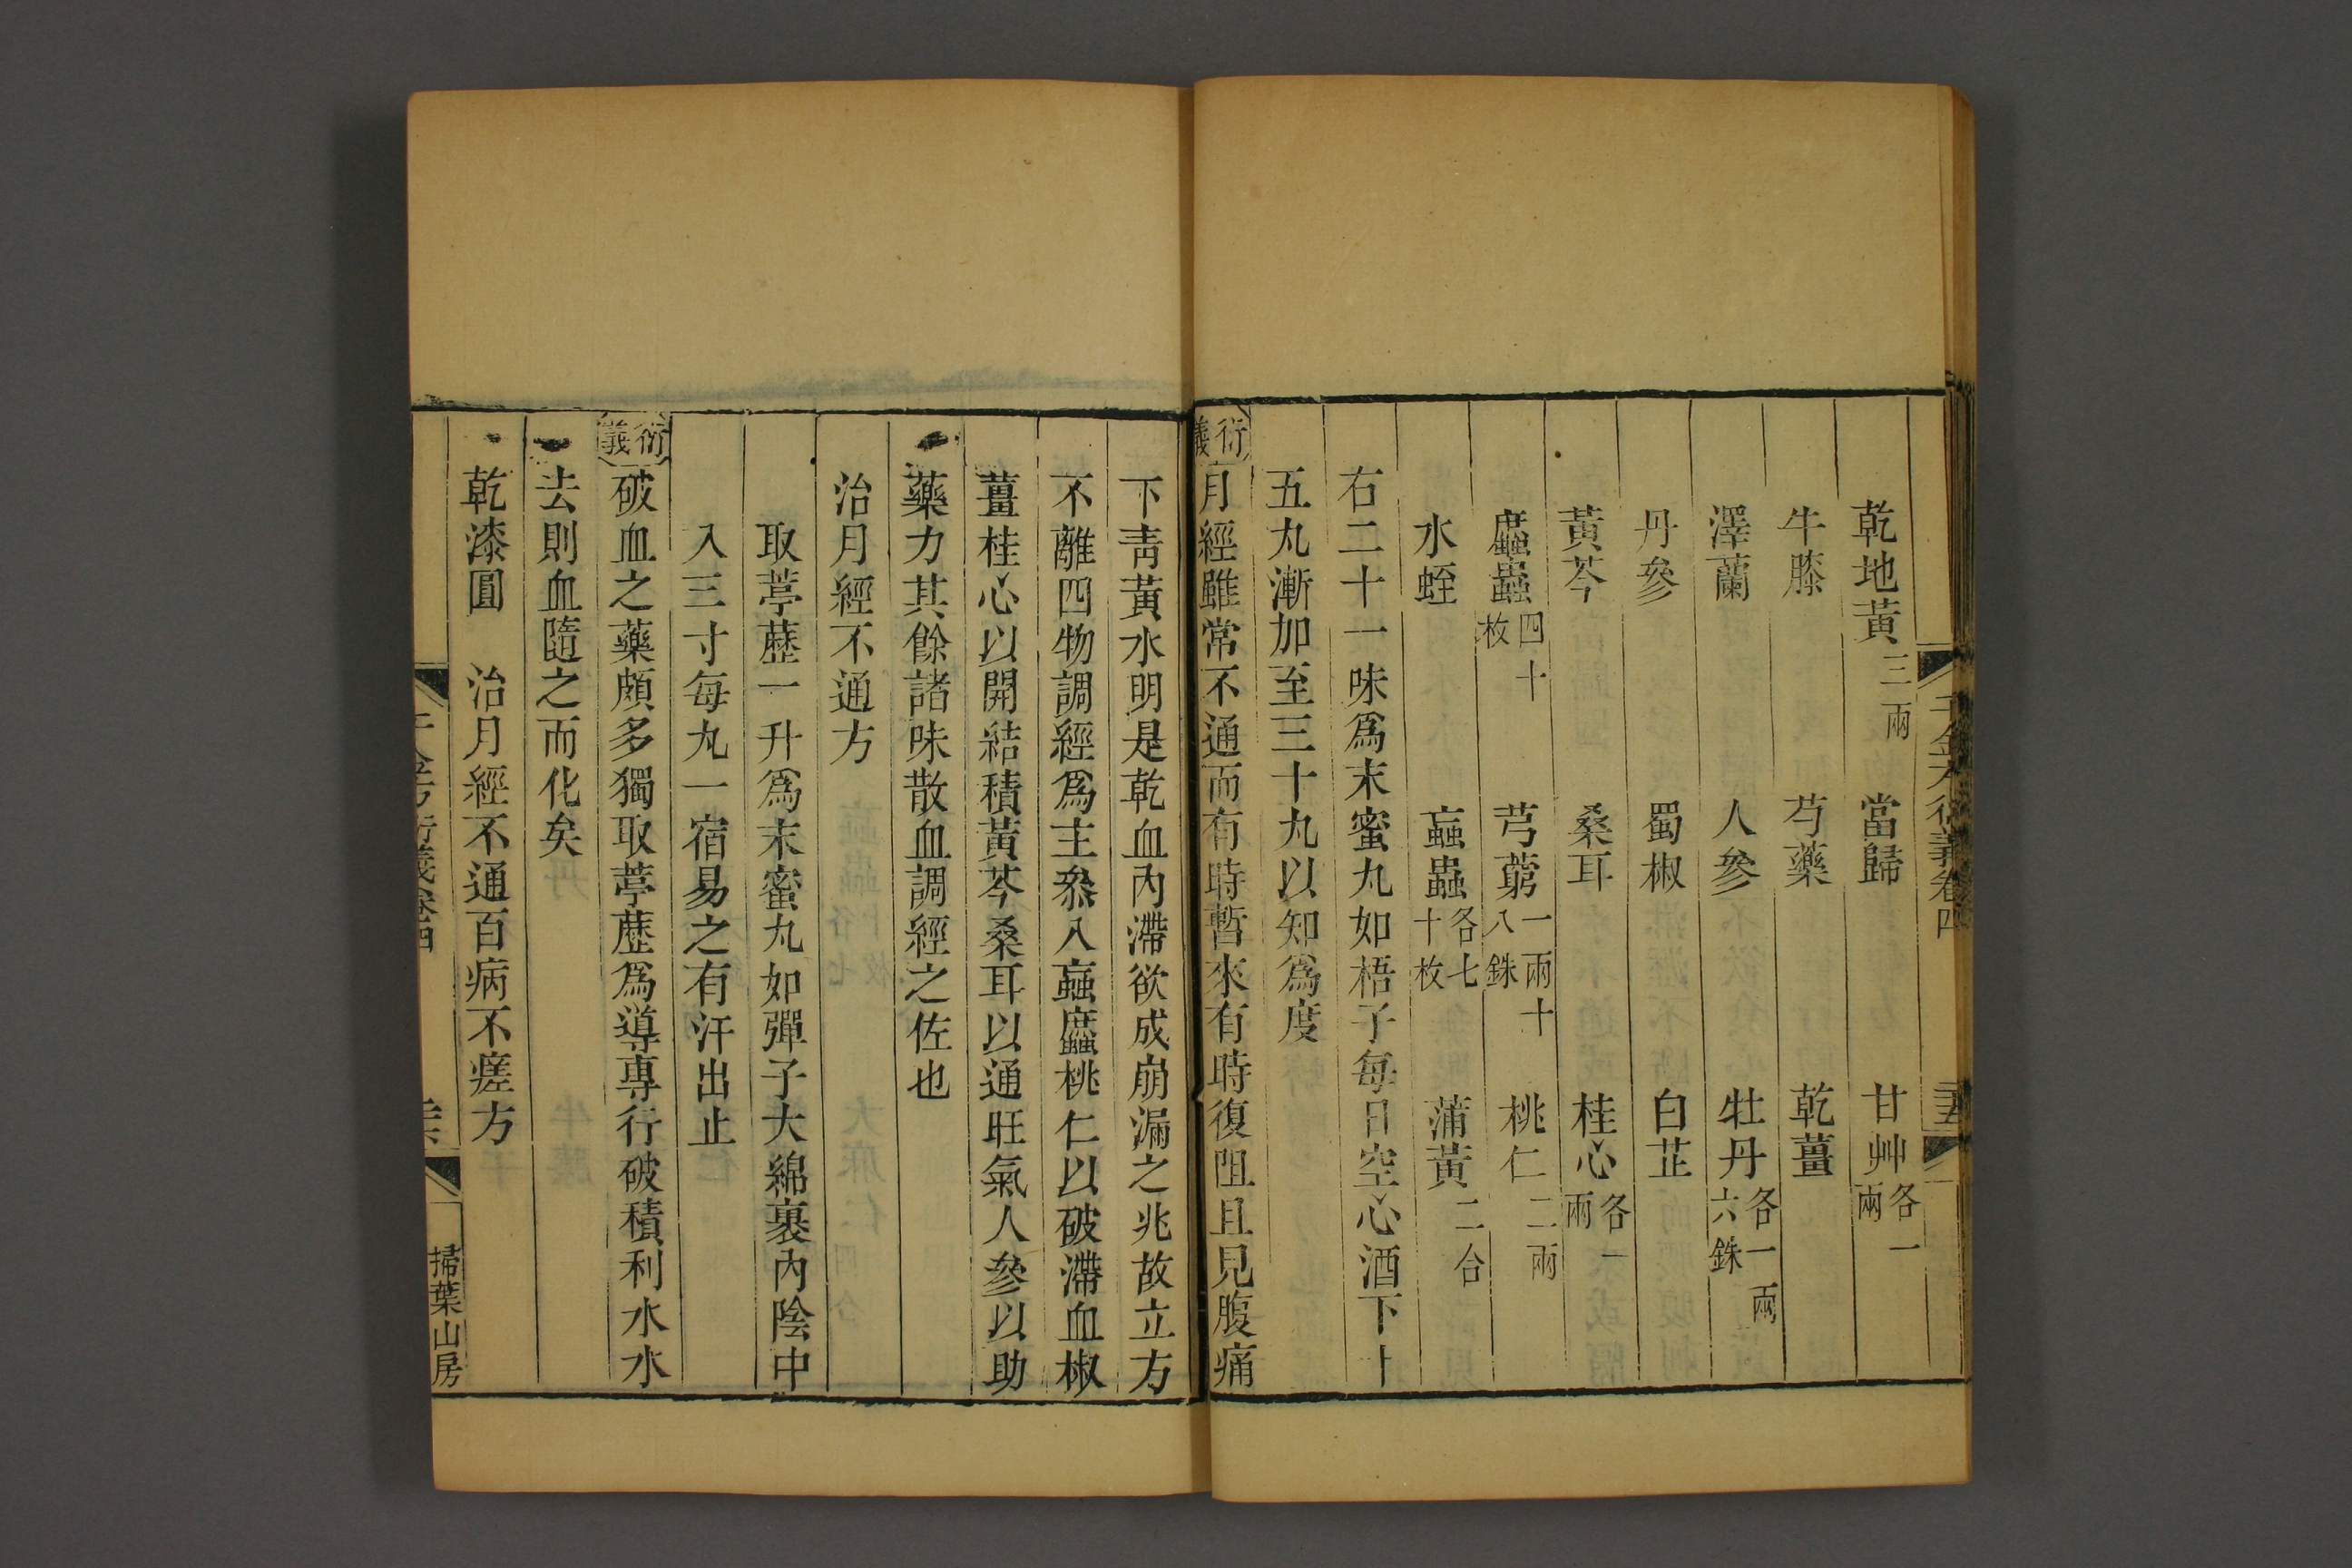 乾地黃三兩 當歸 甘艸各一兩
牛膝 芍藥 乾薑
澤蘭 人參 牡丹各一兩六銖
丹參 蜀椒 白芷
黃芩 桑耳 桂心各一兩
䗪蟲四十枚 芎藭一兩十八銖 桃仁二兩
水蛭 蝱蟲各七十枚 蒲黃二合
右二十一味爲末蜜丸如梧子每日空心酒下十
五丸漸加至三十丸以知爲度
衍義月經雖常不通而有時暫來有時復阻且見腹痛
下青黃水明是乾血內滯欲成崩漏之兆故立方
不離四物調經爲主叅入蝱䗪桃仁以破滯血椒
薑桂心以開結積黃芩桑耳以通旺氣人參以助
藥力其餘諸味散血調經之佐也
治月經不通方
取葶藶一升爲末蜜丸如彈子大綿裹內陰中
入三寸每丸一宿易之有汗出止
衍義破血之藥頗多獨取葶藶爲導專行破積利水水
去則血隨之而化矣
乾漆圓 治月經不通百病不瘥方
千金方衍義卷四
掃葉山房